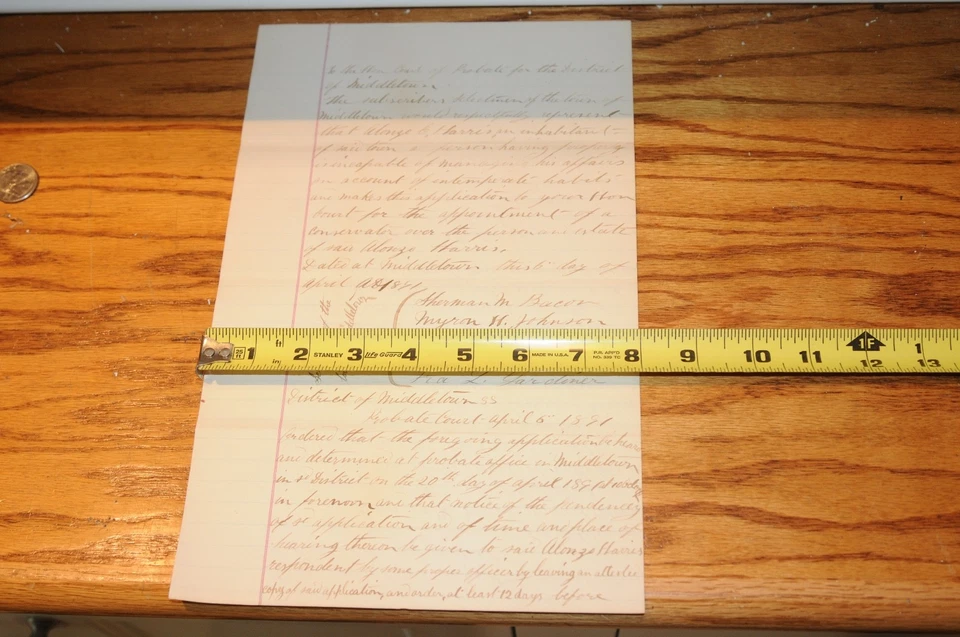 To the Hon Court of Probate for the District
of Middletown.
The subscribers Selectmen of the town of
Middletown would respectfully represent
that Alonzo C. Harris an inhabitant
of said town a person having property
is incapable of managing his affairs
on account of intemperate habits
and makes this application to your Hon
Court for the appointment of a
conservator over the person and estate
of said Alonzo Harris.
Dated at Middletown this 6 day of
April AD 1891
of the
Middletown
Sherman M. Bacon
Myron H. Johnson
ft
in.
1 2 STANLEY 3 Life Guard 4 5 6 MADE IN U.S.A. 7 8 9 10 11 1F 12 13
1
Gardiner
District of Middletown ss
Probate Court April 5 1891
Ordered that the foregoing application be heard
and determined at probate office in Middletown
in sd District on the 20th day of April 1891
in forenoon and that notice of the pendency
of sd application and of time and place of
hearing thereon be given to said Alonzo Harris
respondent by some proper officer by leaving an attested
copy of said application, and order, at least 12 days before